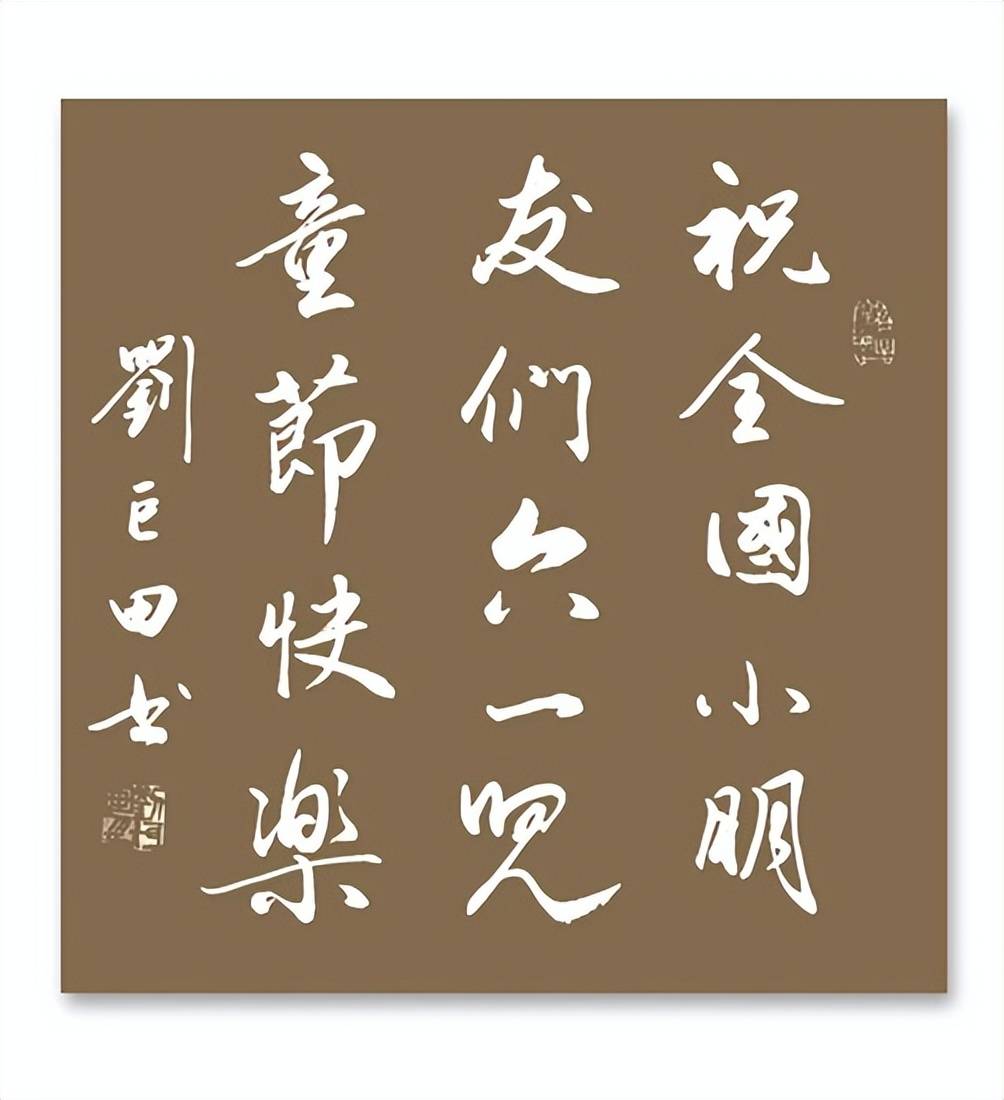 祝全國小朋
友們六一兒
童節快樂
劉巨田书